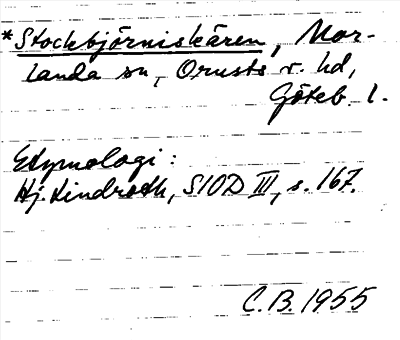 *Stockbjörniskären, Mor-
landa sn, Orusts v. hd,
Göteb. l.
Etymologi:
Hj. Lindroth, SIOD III, s. 167.
C.B. 1955